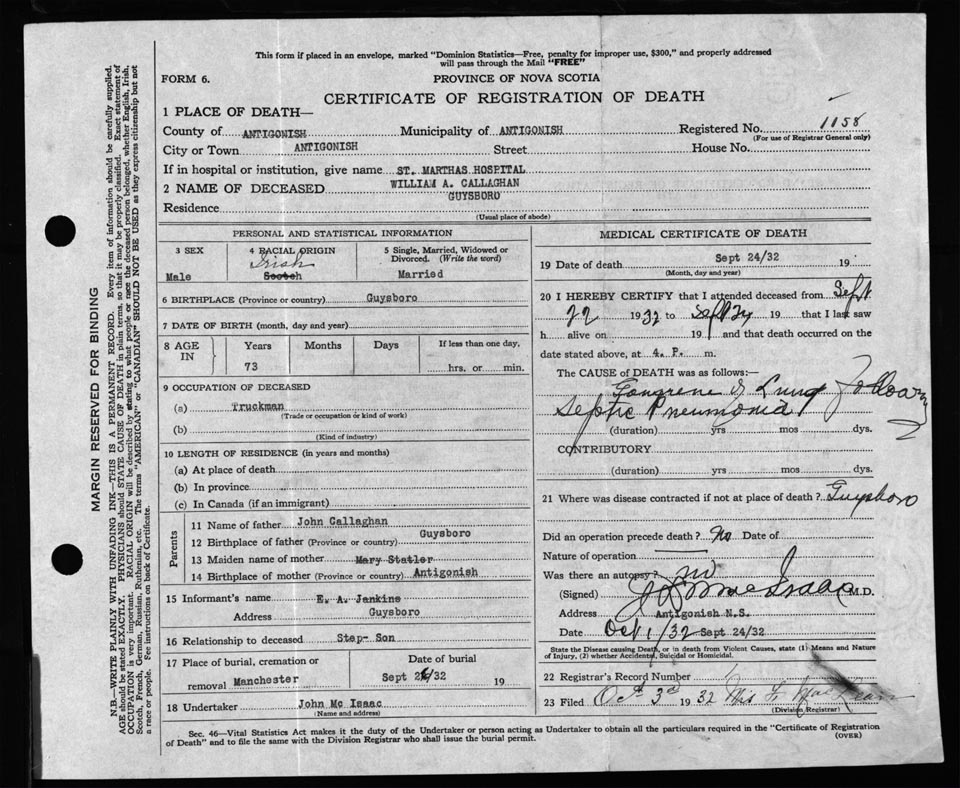 This form if placed in an envelope, marked "Dominion Statistics—Free, penalty for improper use, $300," and properly addressed
will pass through the Mail "FREE"
FORM 6.
PROVINCE OF NOVA SCOTIA
CERTIFICATE OF REGISTRATION OF DEATH
1 PLACE OF DEATH—
County of ANTIGONISH Municipality of ANTIGONISH Registered No. 1158
(For use of Registrar General only)
City or Town ANTIGONISH Street House No.
If in hospital or institution, give name ST. MARTHAS HOSPITAL
2 NAME OF DECEASED WILLIAM A. CALLAGHAN
GUYSBORO
Residence
(Usual place of abode)
PERSONAL AND STATISTICAL INFORMATION
3 SEX
Male
4 RACIAL ORIGIN
Irish
Scotch
5 Single, Married, Widowed or
Divorced. (Write the word)
Married
6 BIRTHPLACE (Province or country) Guysboro
7 DATE OF BIRTH (month, day and year)
8 AGE IN
Years Months Days If less than one day,
73 hrs. or min.
9 OCCUPATION OF DECEASED
(a) Truckman
(Trade or occupation or kind of work)
(b)
(Kind of industry)
10 LENGTH OF RESIDENCE (in years and months)
(a) At place of death
(b) In province
(c) In Canada (if an immigrant)
Parents
11 Name of father John Callaghan
12 Birthplace of father (Province or country) Guysboro
13 Maiden name of mother Mary Statler
14 Birthplace of mother (Province or country) Antigonish
15 Informant's name E. A. Jenkins
Address Guysboro
16 Relationship to deceased Step- Son
17 Place of burial, cremation or
removal Manchester
Date of burial
Sept 2 /32 19
18 Undertaker John Mc Isaac
(Name and address)
MEDICAL CERTIFICATE OF DEATH
19 Date of death Sept 24/32 19
(Month, day and year)
20 I HEREBY CERTIFY that I attended deceased from Sept
22 1932 to Sept 24 19 that I last saw
h alive on 19 and that death occurred on
date stated above, at 4. P. m.
The CAUSE of DEATH was as follows:
Gangrene of Lung following
Septic Pneumonia
(duration) yrs mos dys.
CONTRIBUTORY
(duration) yrs mos dys.
21 Where was disease contracted if not at place of death? Guysboro
Did an operation precede death? No Date of
Nature of operation
Was there an autopsy? no
(Signed) MacIsaac M.D.
Address Antigonish N.S.
Date Oct 1/32 Sept 24/32
State the Disease causing Death, or in death from Violent Causes, state (1) Means and Nature
of Injury, (2) whether Accidental, Suicidal or Homicidal.
22 Registrar's Record Number
23 Filed Oct 3d 1932
(Division Registrar)
Sec. 46—Vital Statistics Act makes it the duty of the Undertaker or person acting as Undertaker to obtain all the particulars required in the "Certificate of Registration
of Death" and to file the same with the Division Registrar who shall issue the burial permit.
(OVER)
MARGIN RESERVED FOR BINDING
N.B.—WRITE PLAINLY WITH UNFADING INK—THIS IS A PERMANENT RECORD. Every item of information should be carefully supplied.
AGE should be stated EXACTLY. PHYSICIANS should STATE CAUSE OF DEATH in plain terms, so that it may be properly classified. Exact statement of
OCCUPATION is very important. RACIAL ORIGIN will be described by stating to what people or race the deceased person belonged, whether English, Irish,
Scotch, French, German, Russian, Ruthenian, etc. The terms "AMERICAN" or "CANADIAN" SHOULD NOT BE USED as they express citizenship but not
a race or people. See instructions on back of Certificate.